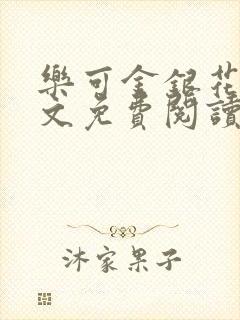 樂可金銀花
文免費閱讀
沐家果子